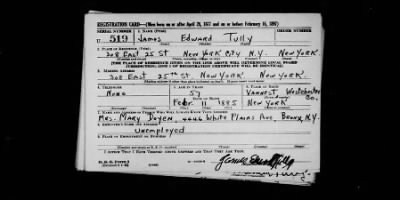 REGISTRATION CARD—(Men born on or after April 28, 1877 and on or before February 16, 1897)
SERIAL NUMBER 1. NAME (Print) ORDER NUMBER
U 519 James Edward Tully
2. PLACE OF RESIDENCE (Print)
308 East 25 St. New York City N.Y. New York
[THE PLACE OF RESIDENCE GIVEN ON THE LINE ABOVE WILL DETERMINE LOCAL BOARD
JURISDICTION; LINE 2 OF REGISTRATION CERTIFICATE WILL BE IDENTICAL]
3. MAILING ADDRESS
308 East 25th St. New York New York
4. TELEPHONE
None
Feb. 11 1885
Varnest Westchester Co.
New York
7. NAME AND ADDRESS OF PERSON WHO WILL ALWAYS KNOW YOUR ADDRESS
Mrs. Mary Doyen, 4446 White Plains Ave, Bronx, N.Y.
8. EMPLOYER'S NAME AND ADDRESS
Unemployed
9. PLACE OF EMPLOYMENT OR BUSINESS
I AFFIRM THAT I HAVE VERIFIED ABOVE ANSWERS AND THAT THEY ARE TRUE.
D. S. S. Form 1
James Edward Tully